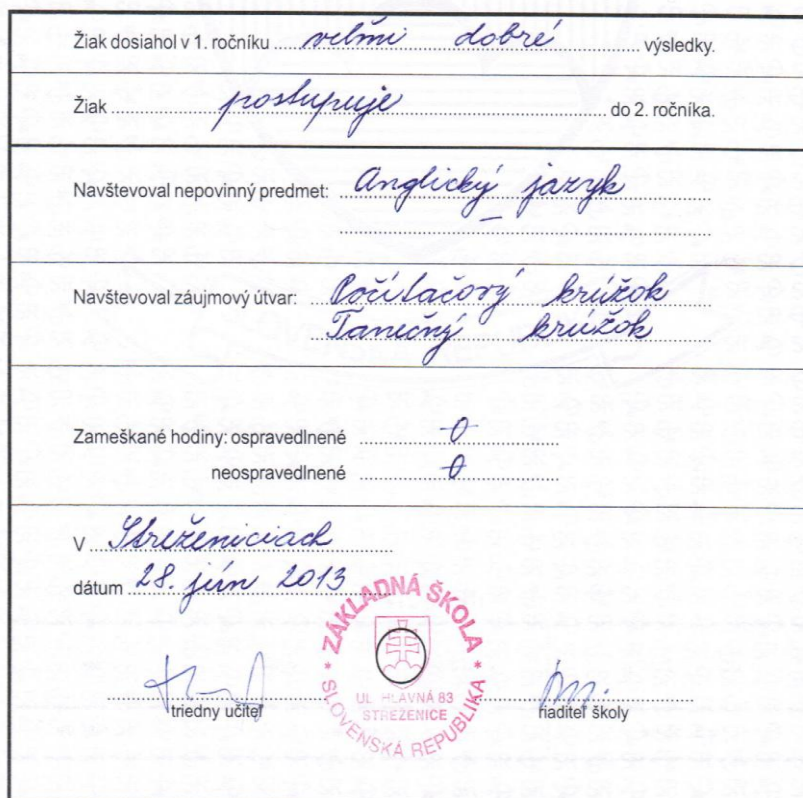 Žiak dosiahol v 1. ročníku veľmi dobré výsledky.
Žiak postupuje do 2. ročníka.
Navštevoval nepovinný predmet: Anglický jazyk
Navštevoval záujmový útvar: Počítačový krúžok
Tanečný krúžok
Zameškané hodiny: ospravedlnené 0
neospravedlnené 0
V Streženiciach
dátum 28. jún 2013
ZÁKLADNÁ ŠKOLA
UL. HLAVNÁ 83
STREŽENICE
SLOVENSKÁ REPUBLIKA
triedny učiteľ
riaditeľ školy